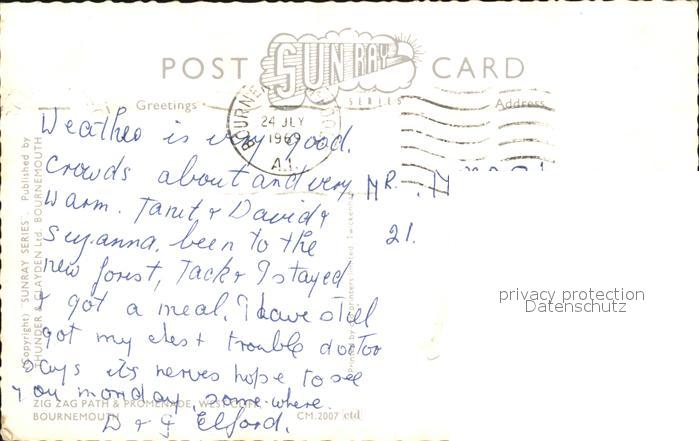 POST SUN RAY CARD
SERIES
Greetings
Address
BOURNEMOUTH
24 JLY
1969
A.I.
Weather is very good.
Crowds about and very
warm. Janet & David &
Suzanna, been to the
new forest, Jack & I stayed
& got a meal. I have still
got my chest trouble doctor
says its nerves hope to see
you monday, some-where.
D & G Elford.
MR. H
21.
(Copyright) SUNRAY SERIES. Published by
THUNDER & CLAYDEN Ltd. BOURNEMOUTH
ZIG ZAG PATH & PROMENADE, WEST CLIFF,
BOURNEMOUTH
CM.2007 ctd
privacy protection
Datenschutz